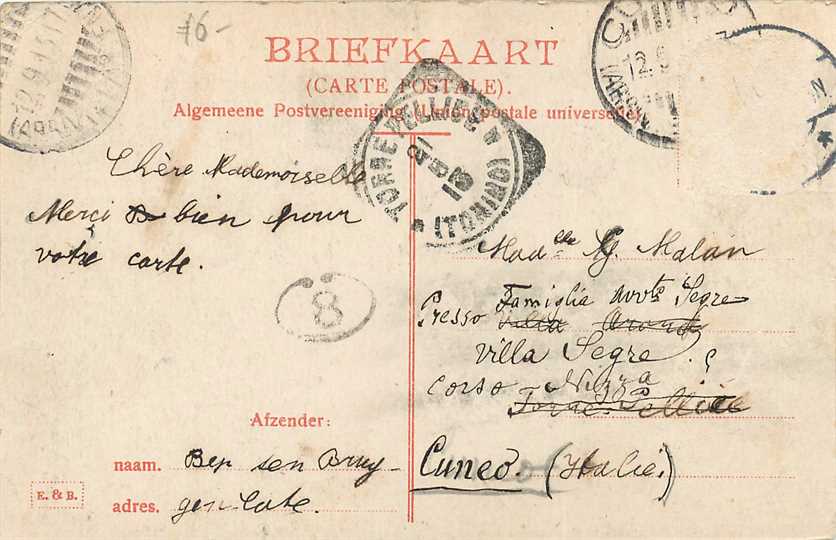 16-
BRIEFKAART
(CARTE POSTALE).
Algemeene Postvereeniging (Union postale universelle)
TORRE PELLICE
(TORINO)
12.9
Chère Mademoiselle
Merci bien pour
votre carte.
8
Madelle G. Malan
Presso Famiglia Avvto Segre
Villa
Villa Segre.
Corso Nizza
Torre Pellice
Cuneo. (Italië.)
Afzender:
naam. Bep
adres.
E. & B.